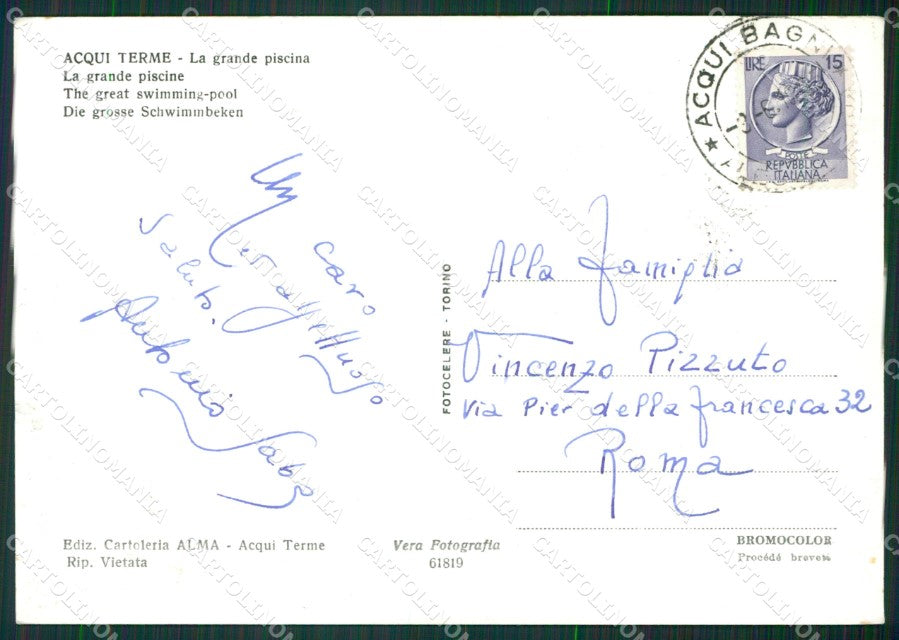 ACQUI TERME - La grande piscina
La grande piscine
The great swimming-pool
Die grosse Schwimmbeken
ACQUI BAGNI
LIRE 15
POSTE
REPVBBLICA
ITALIANA
Un caro
ed affettuoso
saluto.
Antonio
Alla famiglia
Vincenzo Pizzuto
Via Pier della francesca 32
Roma
FOTOCELERE - TORINO
Ediz. Cartoleria ALMA - Acqui Terme
Rip. Vietata
Vera Fotografia
61819
BROMOCOLOR
Procédé breveté
CARTOLINOMANIA